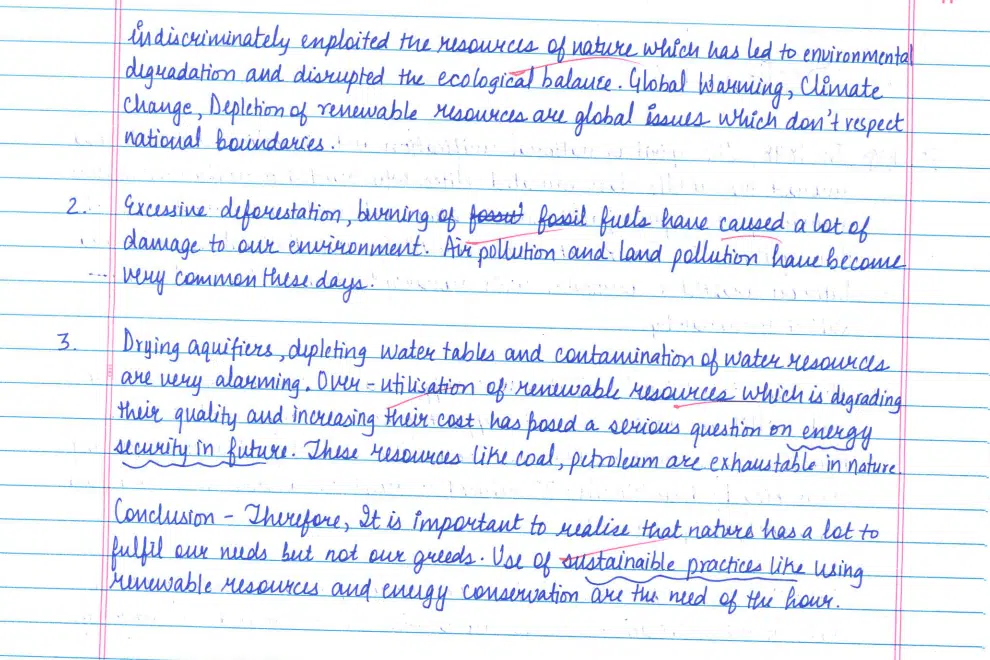 indiscriminately enploited the resources of nature which has led to environmental
degradation and disrupted the ecological balance. Global Warming, Climate
change, Depletion of renewable resources are global issues which don't respect
national boundaries.
2. Excessive deforestation, burning of fossil fuels have caused a lot of
damage to our environment. Air pollution and land pollution have become
very common these days.
3. Drying aquifiers, depleting water tables and contamination of water resources
are very alarming. Over-utilisation of renewable resources which is degrading
their quality and increasing their cost has posed a serious question on energy
security in future. These resources like coal, petroleum are exhaustable in nature.
Conclusion - Therefore, It is important to realise that nature has a lot to
fulfil our needs but not our greeds. Use of sustainaible practices like using
renewable resources and energy conservation are the need of the hour.